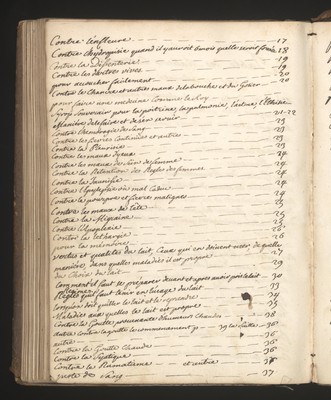 Contre l'enfleure 17
Contre l'hydropisie quand il y auroit 18
Contre la Dissenterie 19
Contre les dartres vives 19
pour accoucher facilement 20
Contre le Chancre et autres maux de la bouche et du Gosier 20
pour faire une medecine
Sirop Souverain pour la poitrine, la pulmonie, l'astme
Maniere de le faire et de s'en servir 21-22
Contre l'hemoragie de Sang 23
Contre les fievres Continues et autres 23
Contre la Pleuresie 23
Contre les maux d'yeux 24
Contre les maux de Sein de femme 24
Contre la Retention des Regles des femmes 24
Contre la Jaunisse 24
Contre l'Epilepsie ou mal Caduc 24
Contre le pourpre et fievres malignes 24
Contre les maux de tête 25
Contre la Migraine 25
Contre l'Apoplexie 25
Contre la lethargie 26
pour la mémoire 26
vertus et qualités du lait, Ceux qui en doivent user, de quelle
maniere, dans quelles maladies il est propre 27
du Choix du lait 29
Comment il faut se préparer devant et après avoir pris le lait 30
Regles qu'il faut tenir en l'usage du lait 33
lorsqu'on doit quitter le lait et le reprendre 34
Maladies aux quelles le lait est propre 35
Contre la Goutte provenante d'humeurs Chaudes 38
autre Contre la goutte 36
autre 36
Contre la Goutte Chaude 36
Contre la Sciatique 36
Contre le Rhumatisme et autre 37
perte de Sang 37